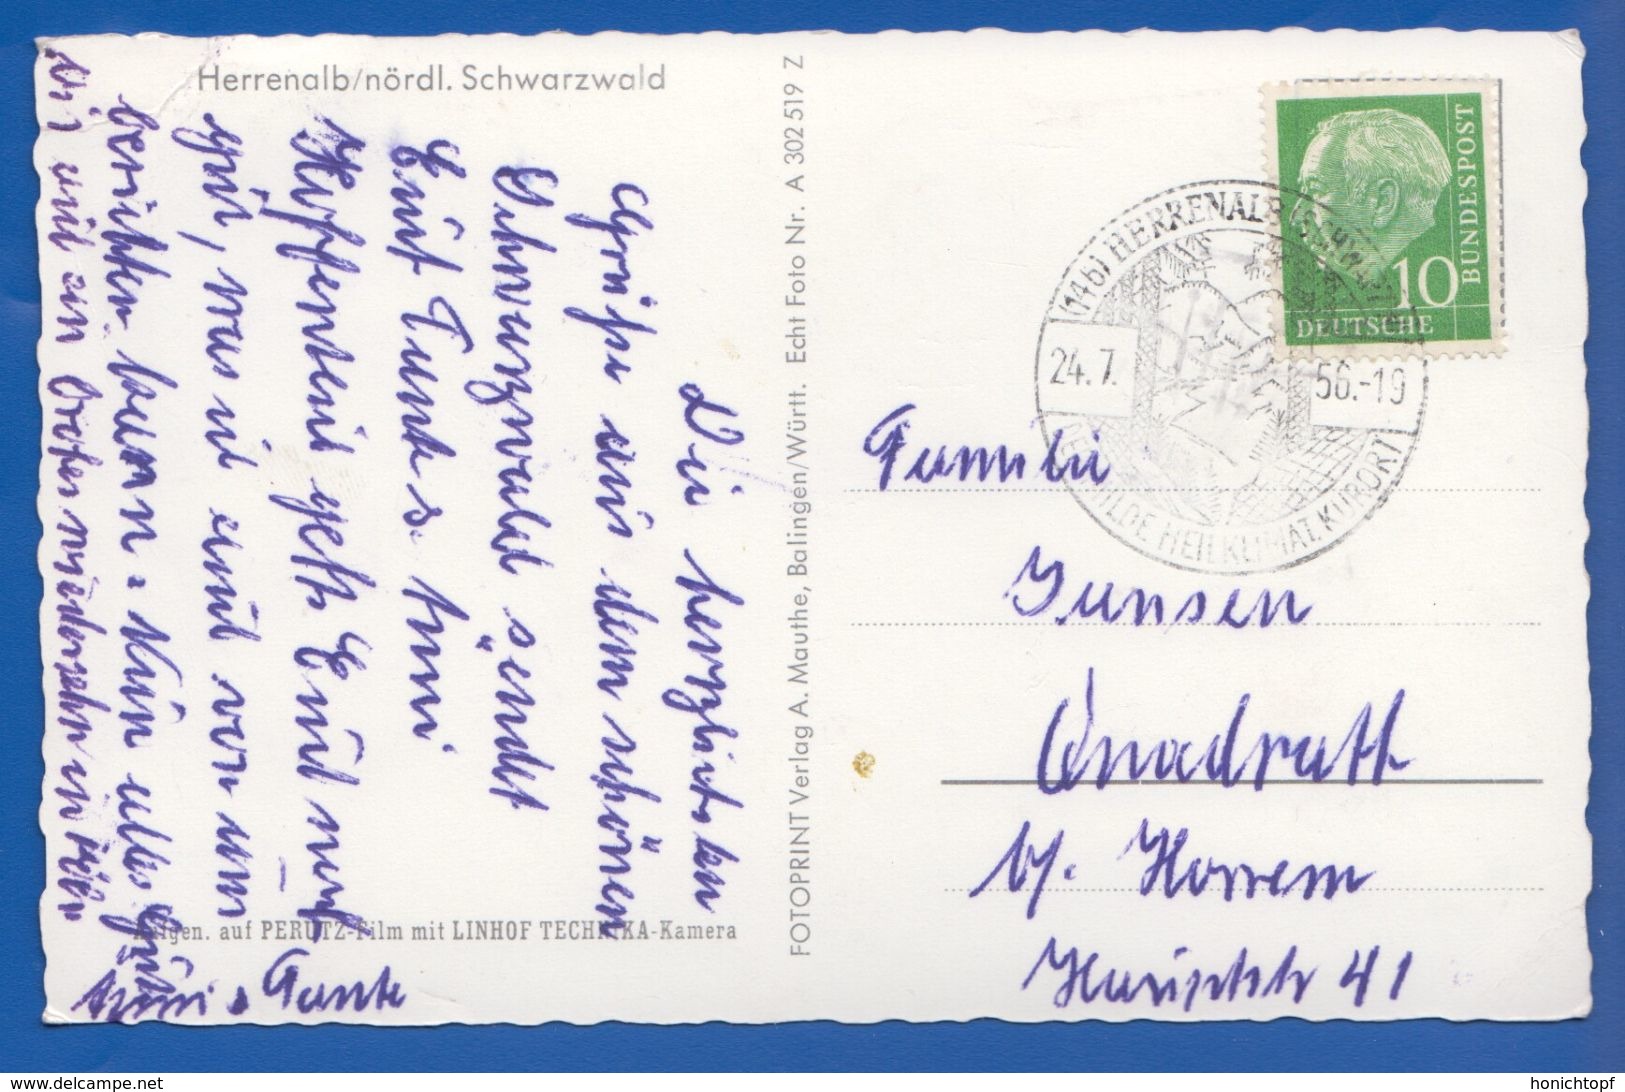 Herrenalb/nördl. Schwarzwald
Die herzlichsten
Grüße aus dem schönen
Schwarzwald sendet
Euch Tante
Hoffentlich geht's Euch noch
gut, was ich auch von uns
berichten kann. Nun alles Gute
bis auf ein Wiedersehn in Köln
Tante
Aufgen. auf PERUTZ-Film mit LINHOF TECHNIKA-Kamera
FOTOPRINT Verlag A. Mauthe, Balingen/Württ. Echt Foto Nr. A 302 519 Z
DEUTSCHE
BUNDESPOST
10
(14b) HERRENALB (SCHWARZW.)
24.7. 56.-19
HEILKLIMAT. KURORT
Familie
Jansen
Quadrath
b/. Horrem
Hauptstr 41
honichtopf